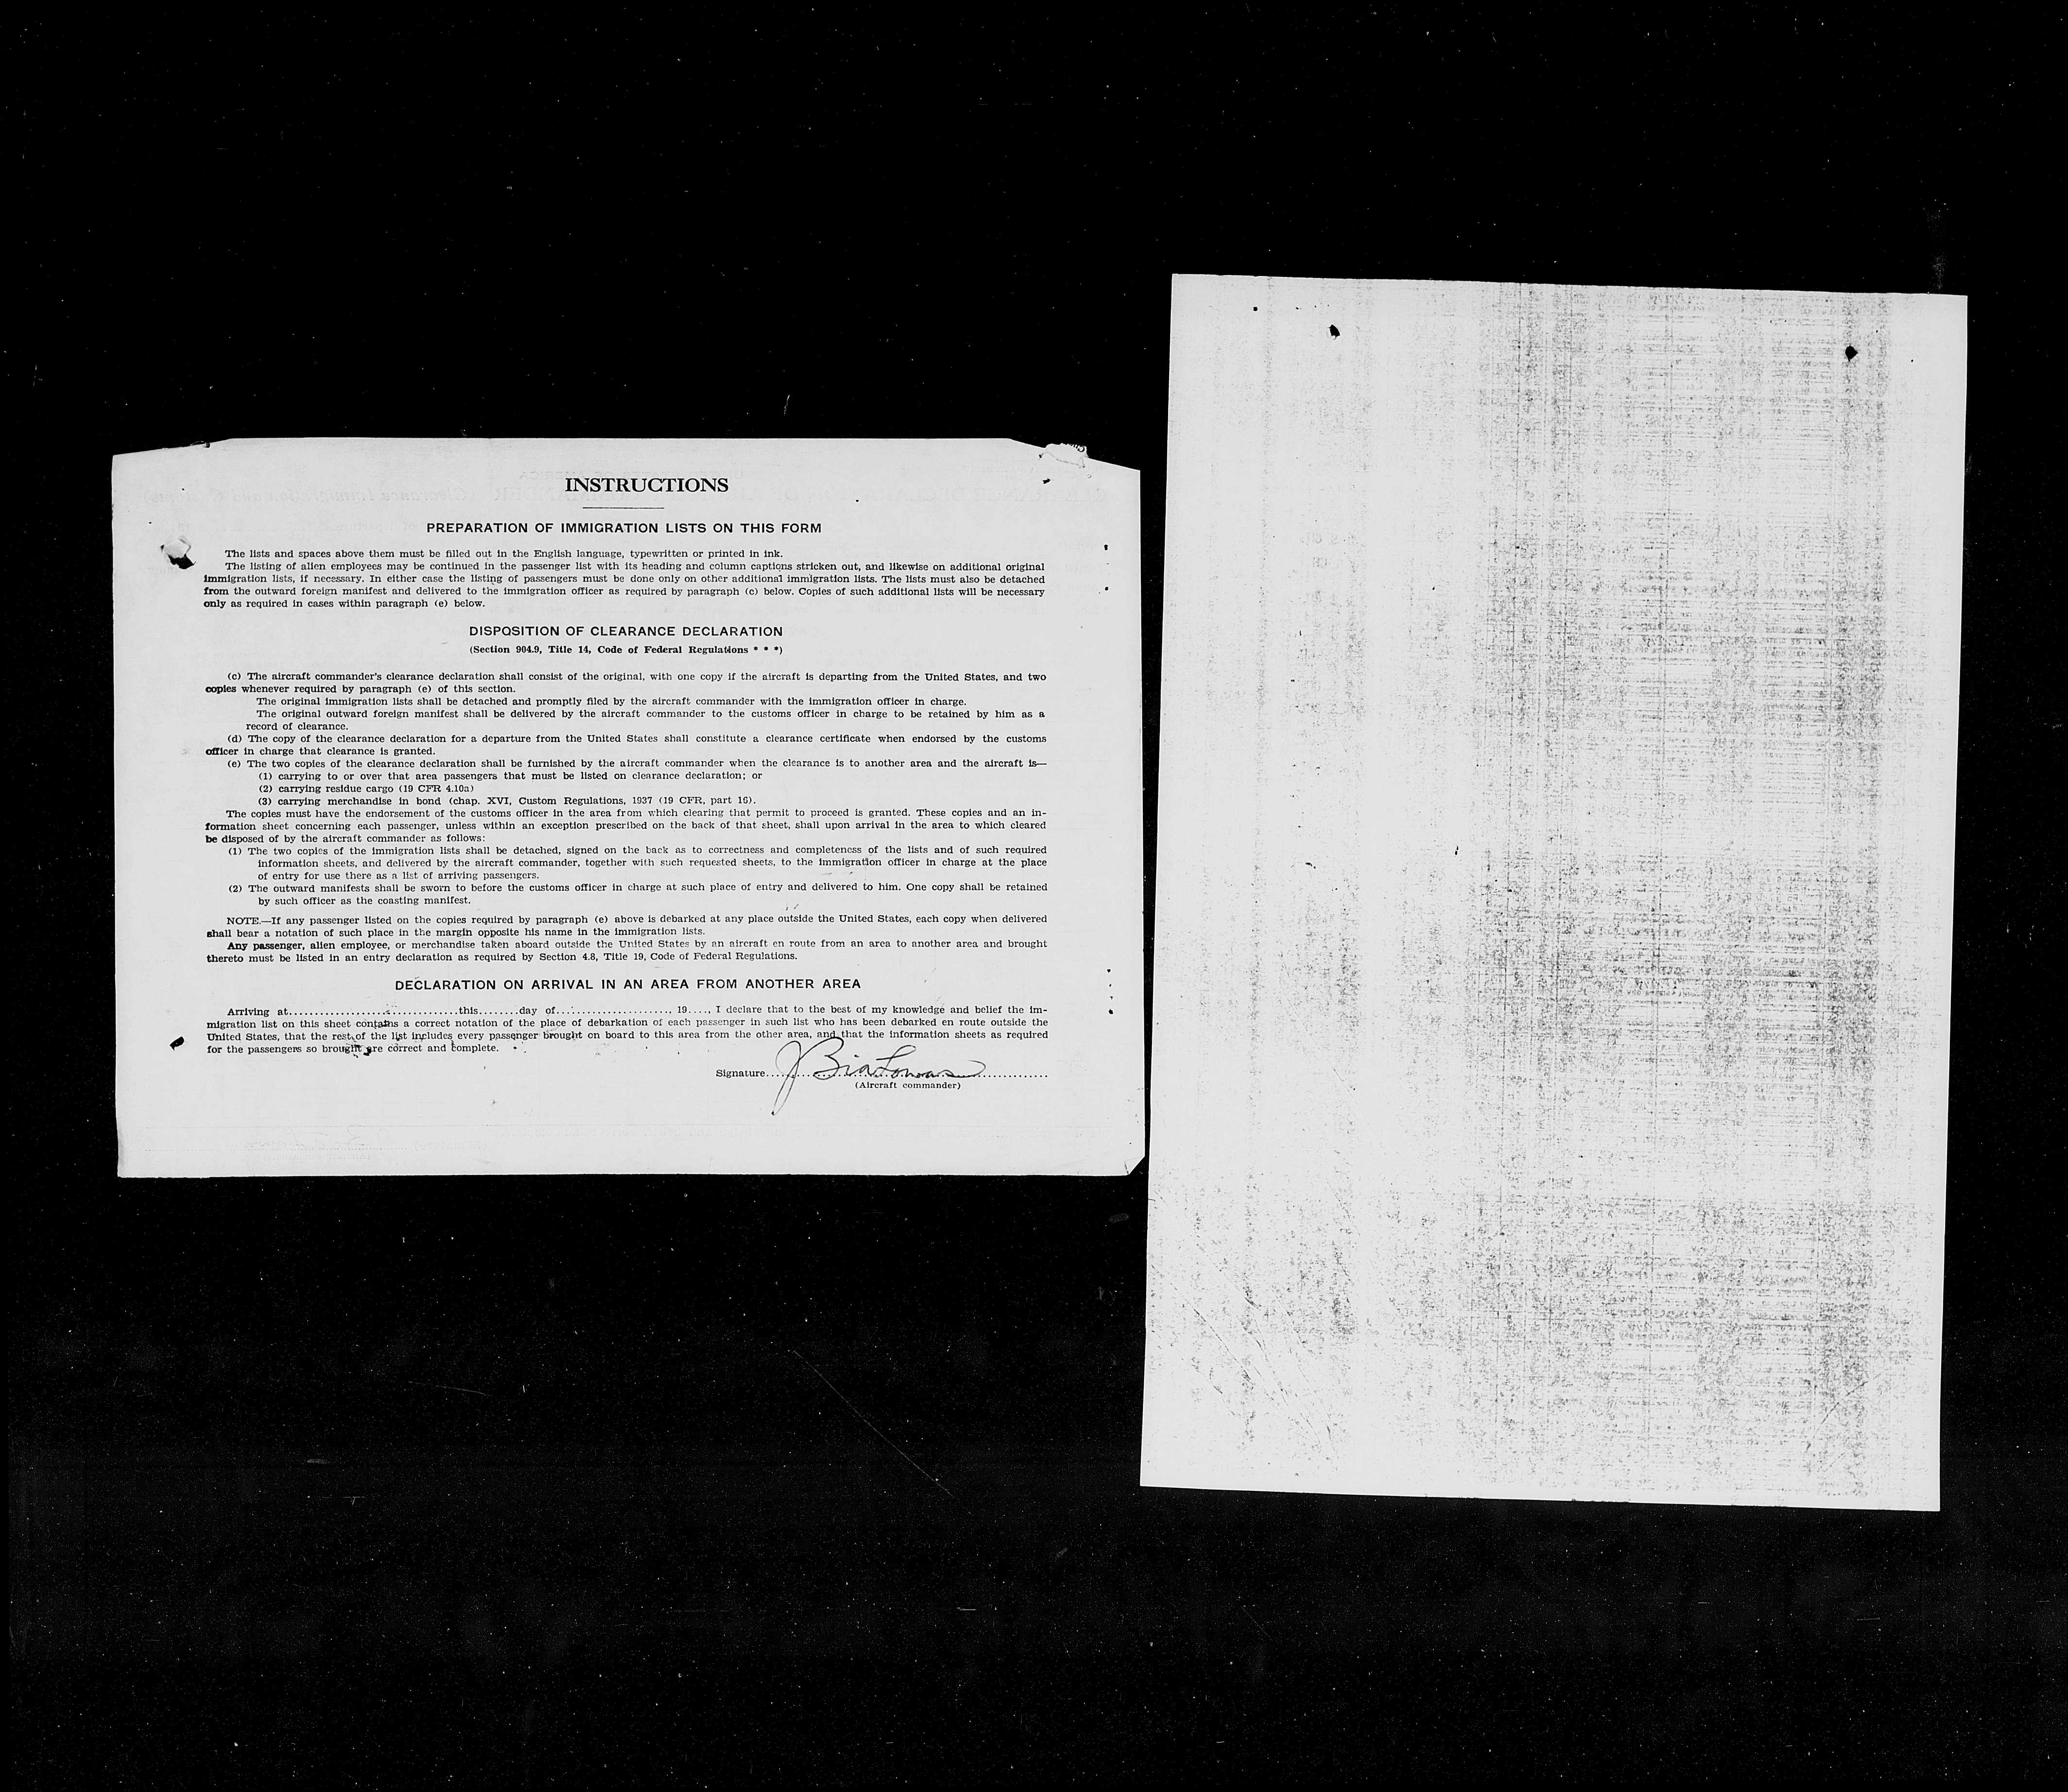 INSTRUCTIONS
PREPARATION OF IMMIGRATION LISTS ON THIS FORM
The lists and spaces above them must be filled out in the English language, typewritten or printed in ink.
The listing of alien employees may be continued in the passenger list with its heading and column captions stricken out, and likewise on additional original
immigration lists, if necessary. In either case the listing of passengers must be done only on other additional immigration lists. The lists must also be detached
from the outward foreign manifest and delivered to the immigration officer as required by paragraph (c) below. Copies of such additional lists will be necessary
only as required in cases within paragraph (e) below.
DISPOSITION OF CLEARANCE DECLARATION
(Section 904.9, Title 14, Code of Federal Regulations * * *)
(c) The aircraft commander's clearance declaration shall consist of the original, with one copy if the aircraft is departing from the United States, and two
copies whenever required by paragraph (e) of this section.
The original immigration lists shall be detached and promptly filed by the aircraft commander with the immigration officer in charge.
The original outward foreign manifest shall be delivered by the aircraft commander to the customs officer in charge to be retained by him as a
record of clearance.
(d) The copy of the clearance declaration for a departure from the United States shall constitute a clearance certificate when endorsed by the customs
officer in charge that clearance is granted.
(e) The two copies of the clearance declaration shall be furnished by the aircraft commander when the clearance is to another area and the aircraft is—
(1) carrying to or over that area passengers that must be listed on clearance declaration; or
(2) carrying residue cargo (19 CFR 4.10a)
(3) carrying merchandise in bond (chap. XVI, Custom Regulations, 1937 (19 CFR, part 16).
The copies must have the endorsement of the customs officer in the area from which clearing that permit to proceed is granted. These copies and an in-
formation sheet concerning each passenger, unless within an exception prescribed on the back of that sheet, shall upon arrival in the area to which cleared
be disposed of by the aircraft commander as follows:
(1) The two copies of the immigration lists shall be detached, signed on the back as to correctness and completeness of the lists and of such required
information sheets, and delivered by the aircraft commander, together with such requested sheets, to the immigration officer in charge at the place
of entry for use there as a list of arriving passengers.
(2) The outward manifests shall be sworn to before the customs officer in charge at such place of entry and delivered to him. One copy shall be retained
by such officer as the coasting manifest.
NOTE.—If any passenger listed on the copies required by paragraph (e) above is debarked at any place outside the United States, each copy when delivered
shall bear a notation of such place in the margin opposite his name in the immigration lists.
Any passenger, alien employee, or merchandise taken aboard outside the United States by an aircraft en route from an area to another area and brought
thereto must be listed in an entry declaration as required by Section 4.8, Title 19, Code of Federal Regulations.
DECLARATION ON ARRIVAL IN AN AREA FROM ANOTHER AREA
Arriving at.......................................this........day of........................, 19...., I declare that to the best of my knowledge and belief the im-
migration list on this sheet contains a correct notation of the place of debarkation of each passenger in such list who has been debarked en route outside the
United States, that the rest of the list includes every passenger brought on board to this area from the other area, and that the information sheets as required
for the passengers so brought are correct and complete.
Signature
(Aircraft commander)